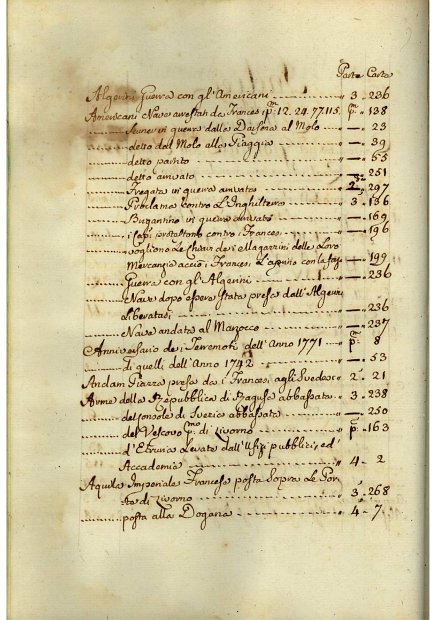 Parte Carta
Algerini Guerra con gl'Americani 3 - 236
Americani Nave arrestati da Francesi pm 12. 24. 77. 115. pm - 138
in guerra dalla Darsena al Molo " - 23
detto dal Molo alla Piaggia " - 39
detto partito " - 55
detto arrivato " - 251
Fregata in guerra arrivata 2 - 297
Proclama contro l'Inghilterra 3 - 136
Brigantino in guerra arrivato " - 169
i Capi protestono contro i Francesi " - 196
vogliono le Chiavi dei Magazzini delle Loro
Mercanzie acciò i Francesi L'aprino con la " - 199
Guerra con gl'Algerini " - 236
Nave dopo essere stata presa dall'Algerini
Liberatasi " - 236
Nave andata al Marzocco " - 237
Anniversario dei Terremoti dell'Anno 1771 pm 8
di quelli dell'Anno 1742 " - 53
Andam Piazza presa da i Francesi agli Svedesi 2 - 21
Arme della Repubblica di Ragusa abbassata 3 - 238
del Console di Svezia abbassata " - 250
del Vescovo pmo di Livorno pm - 163
d'Etruria Levate dall'Ufizi pubblici, ed
Accademie " 4 - 2
Aquila Imperiale Francese posta Sopra Le Por
ta di Livorno " 3 - 268
posta alla Dogana " 4 - 7